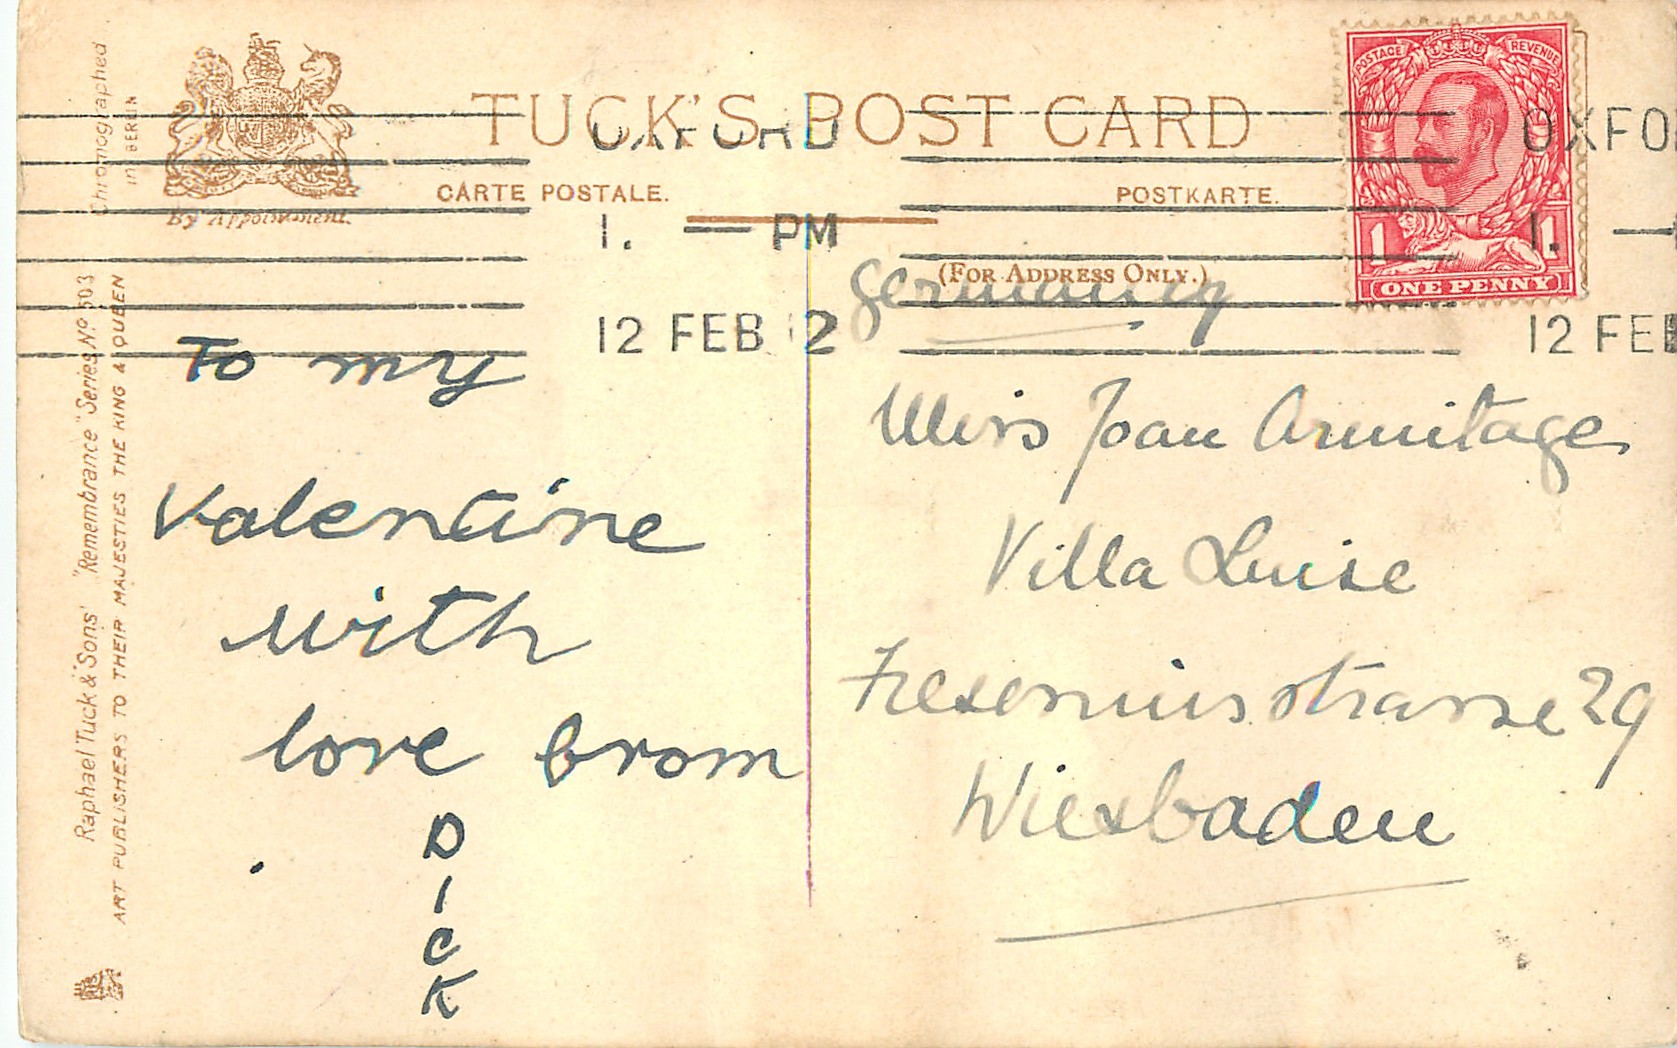 TUCK'S POST CARD
CARTE POSTALE.
POSTKARTE.
(FOR ADDRESS ONLY.)
By Appointment.
Chromographed
in BERLIN
Raphael Tuck & Sons' "Remembrance" Series Nº 503
ART PUBLISHERS TO THEIR MAJESTIES THE KING & QUEEN
POSTAGE REVENUE
1 1
ONE PENNY
OXFORD
1. — PM
12 FEB 12
OXFO
1. —
12 FEB
To my
Valentine
with
love from
D
I
C
K
Germany
Miss Joan Armitage
Villa Luise
Fresenius strasse 29
Wiesbaden